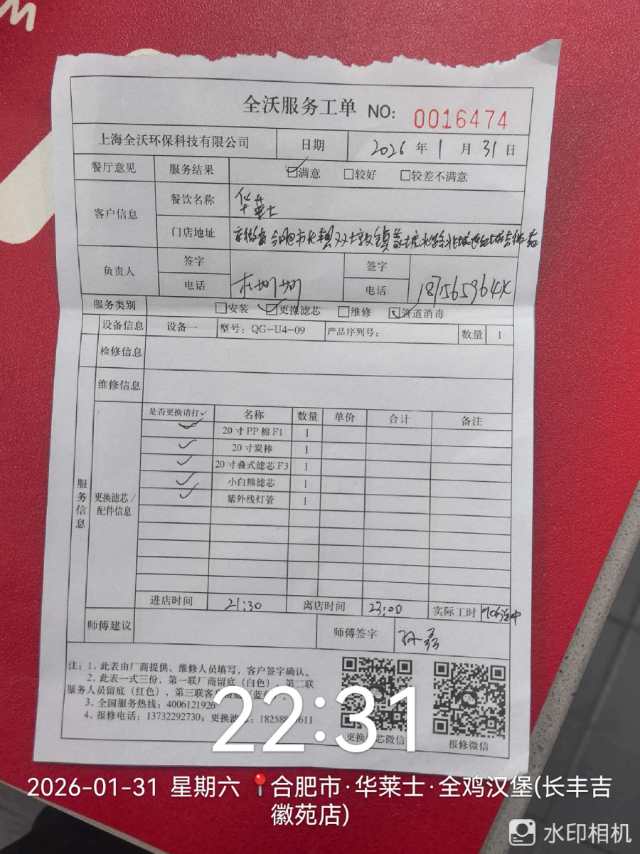 全沃服务工单 NO: 0016474
上海全沃环保科技有限公司 日期 2026年1月31日
餐厅意见 服务结果 ☑满意 □较好 □较差不满意
客户信息 餐饮名称 华莱士
门店地址
负责人 签字 签字
电话 电话
服务类别 □安装 ☑更换滤芯 □维修 ☑管道消毒
设备信息 设备一 型号: QG-U4-09 产品序列号: 数量 1
检修信息
维修信息
服务信息
更换滤芯/配件信息
是否更换请打✓ 名称 数量 单价 合计 备注
✓ 20寸PP棉F1 1
✓ 20寸炭棒 1
✓ 20寸叠式滤芯F3 1
✓ 小白熊滤芯 1
✓ 紫外线灯管 1
进店时间 21:30 离店时间 23:00 实际工时
师傅建议 师傅签字
注: 1、此表由厂商提供、维修人员填写,客户签字确认。
2、此表一式三份,第一联厂商留底(白色),第二联
服务人员留底(红色),第三联客
3、全国服务热线: 4006121926
4、报修电话: 13732292730; 更换滤
更换 芯微信
报修微信
22:31
2026-01-31 星期六 合肥市·华莱士·全鸡汉堡(长丰吉
徽苑店)
水印相机